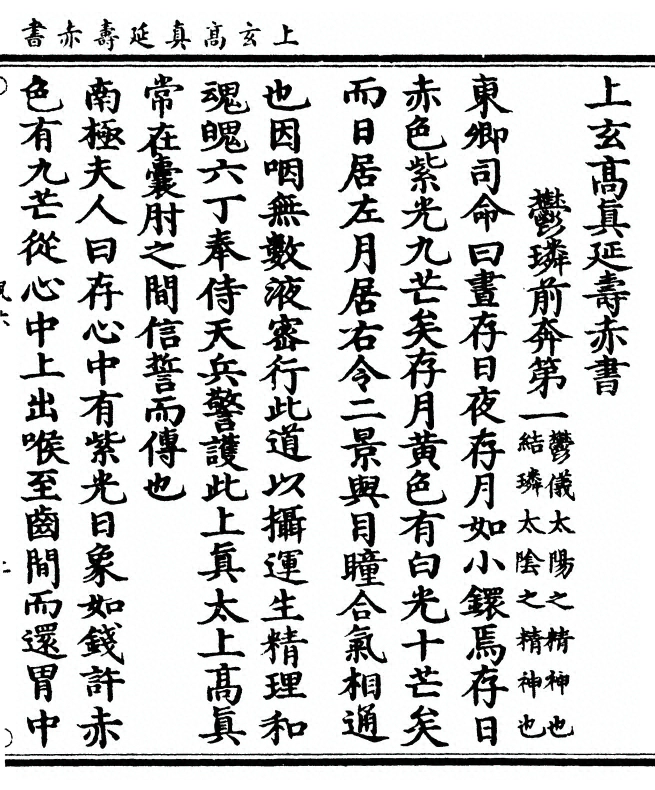 上玄髙真延壽赤書
上玄髙眞延壽赤書
鬱璘前奔第一
鬱儀太陽之精神也
結璘太陰之精神也
東卿司命曰晝存日夜存月如小鐶焉存日
赤色紫光九芒矣存月黄色有白光十芒矣
而日居左月居右令二景與目瞳合氣相通
也因咽無數液密行此道以攝運生精理和
魂魄六丁奉侍天兵警護此上眞太上髙眞
常在囊肘之間信誓而傳也
南極夫人曰存心中有紫光日象如錢許赤
色有九芒從心中上出喉至齒間而還胃中